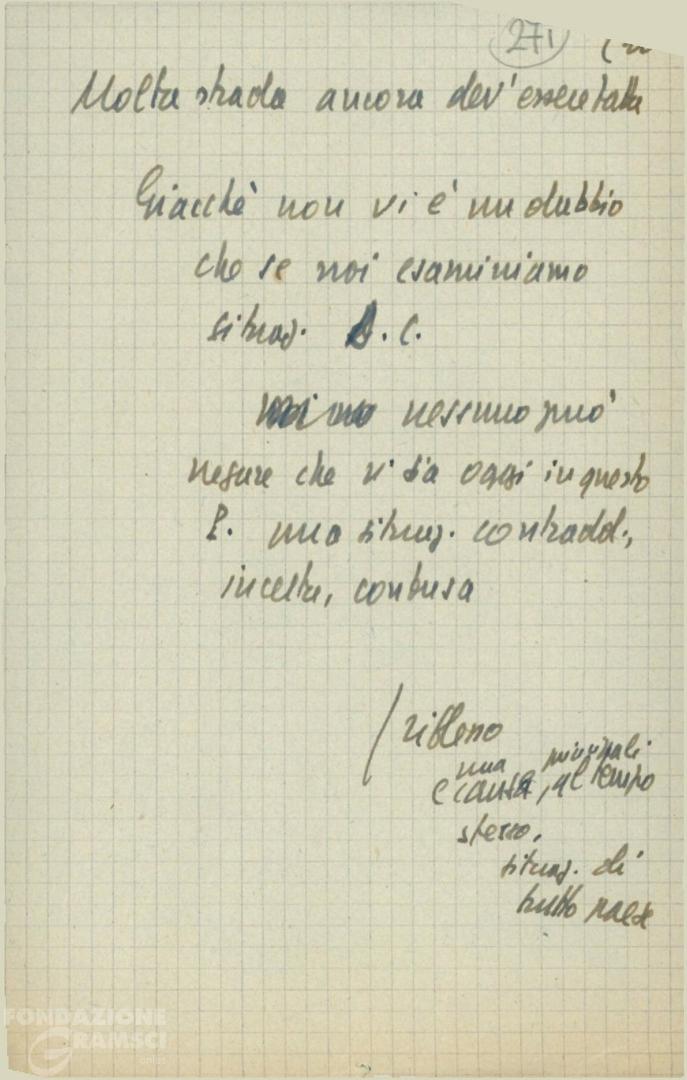 271
Molta strada ancora dev'essere fatta
Giacchè non vi è un dubbio
che se noi esaminiamo
situaz. D.C.
nessuno può
negare che vi sia oggi in questo
P. una situaz. contradd.,
incerta, confusa
riflesso
una principali
e causa, al tempo
stesso,
situaz. di
tutto paese
FONDAZIONE
GRAMSCI